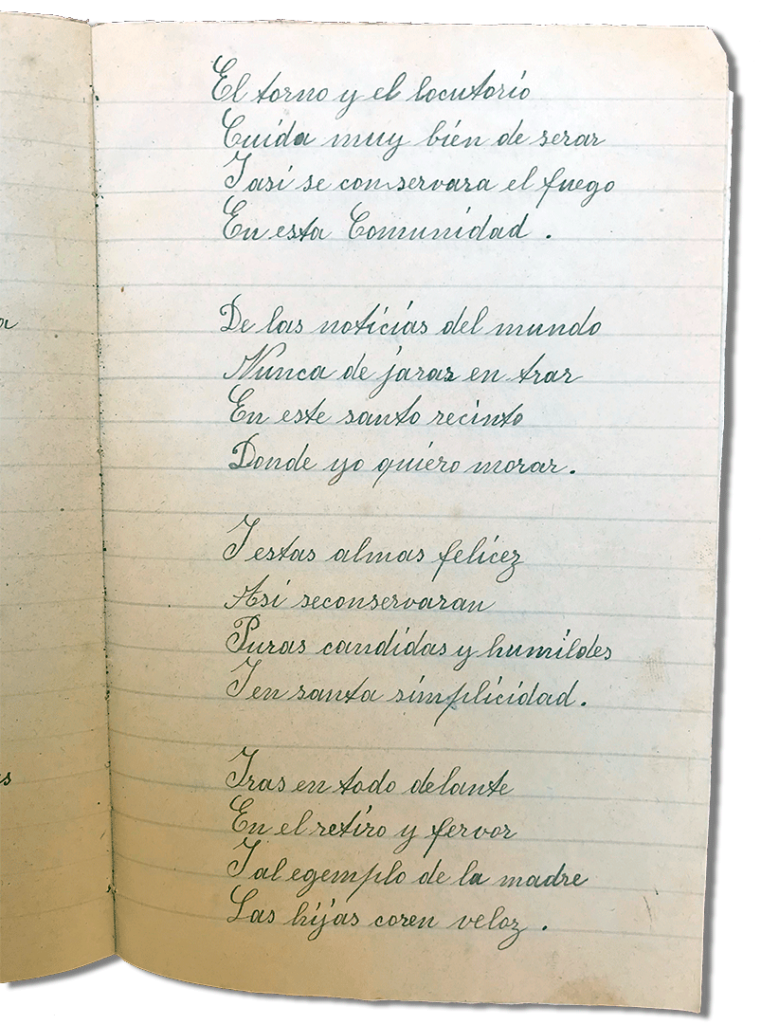 El torno y el locutorio
Cuida muy bien de serar
I asi se conservara el fuego
En esta Comunidad .
De las noticias del mundo
Nunca de jaras en trar
En este santo recinto
Donde yo quiero morar.
I estas almas felicez
Asi seconservaran
Puras candidas y humildes
I en santa simplicidad.
Iras en todo delante
En el retiro y fervor
I al egemplo de la madre
Las hijas coren veloz .